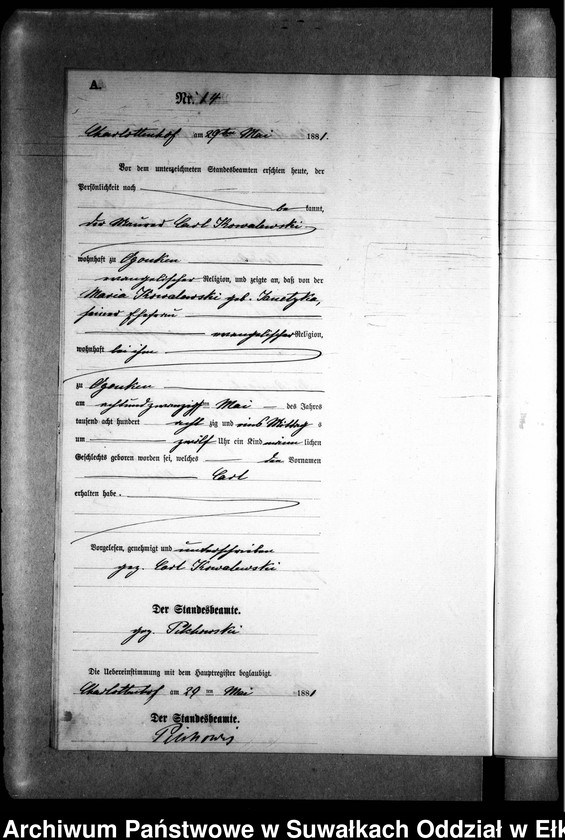 A.
Nr. 14
Charlottenhof am 29ten Mai 1881.
Vor dem unterzeichneten Standesbeamten erschien heute, der
Persönlichkeit nach
be kannt,
der Maurer Carl Kowalewski
wohnhaft zu Ogonken
evangelischer Religion, und zeigte an, daß von der
Maria Kowalewski geb. Janetzka,
seiner Ehefrau
evangelischer Religion,
wohnhaft bei ihm
zu Ogonken
am achtundzwanzigsten Mai des Jahres
tausend acht hundert acht zig und eins Mittags
um zwölf Uhr ein Kind männ lichen
Geschlechts geboren worden sei, welches den Vornamen
Carl
erhalten habe.
Vorgelesen, genehmigt und unterschrieben
gez. Carl Kowalewski
Der Standesbeamte.
gez.
Die Uebereinstimmung mit dem Hauptregister beglaubigt.
Charlottenhof am 29 ten Mai 1881
Der Standesbeamte.
Archiwum Państwowe w Suwałkach Oddział w Ełk